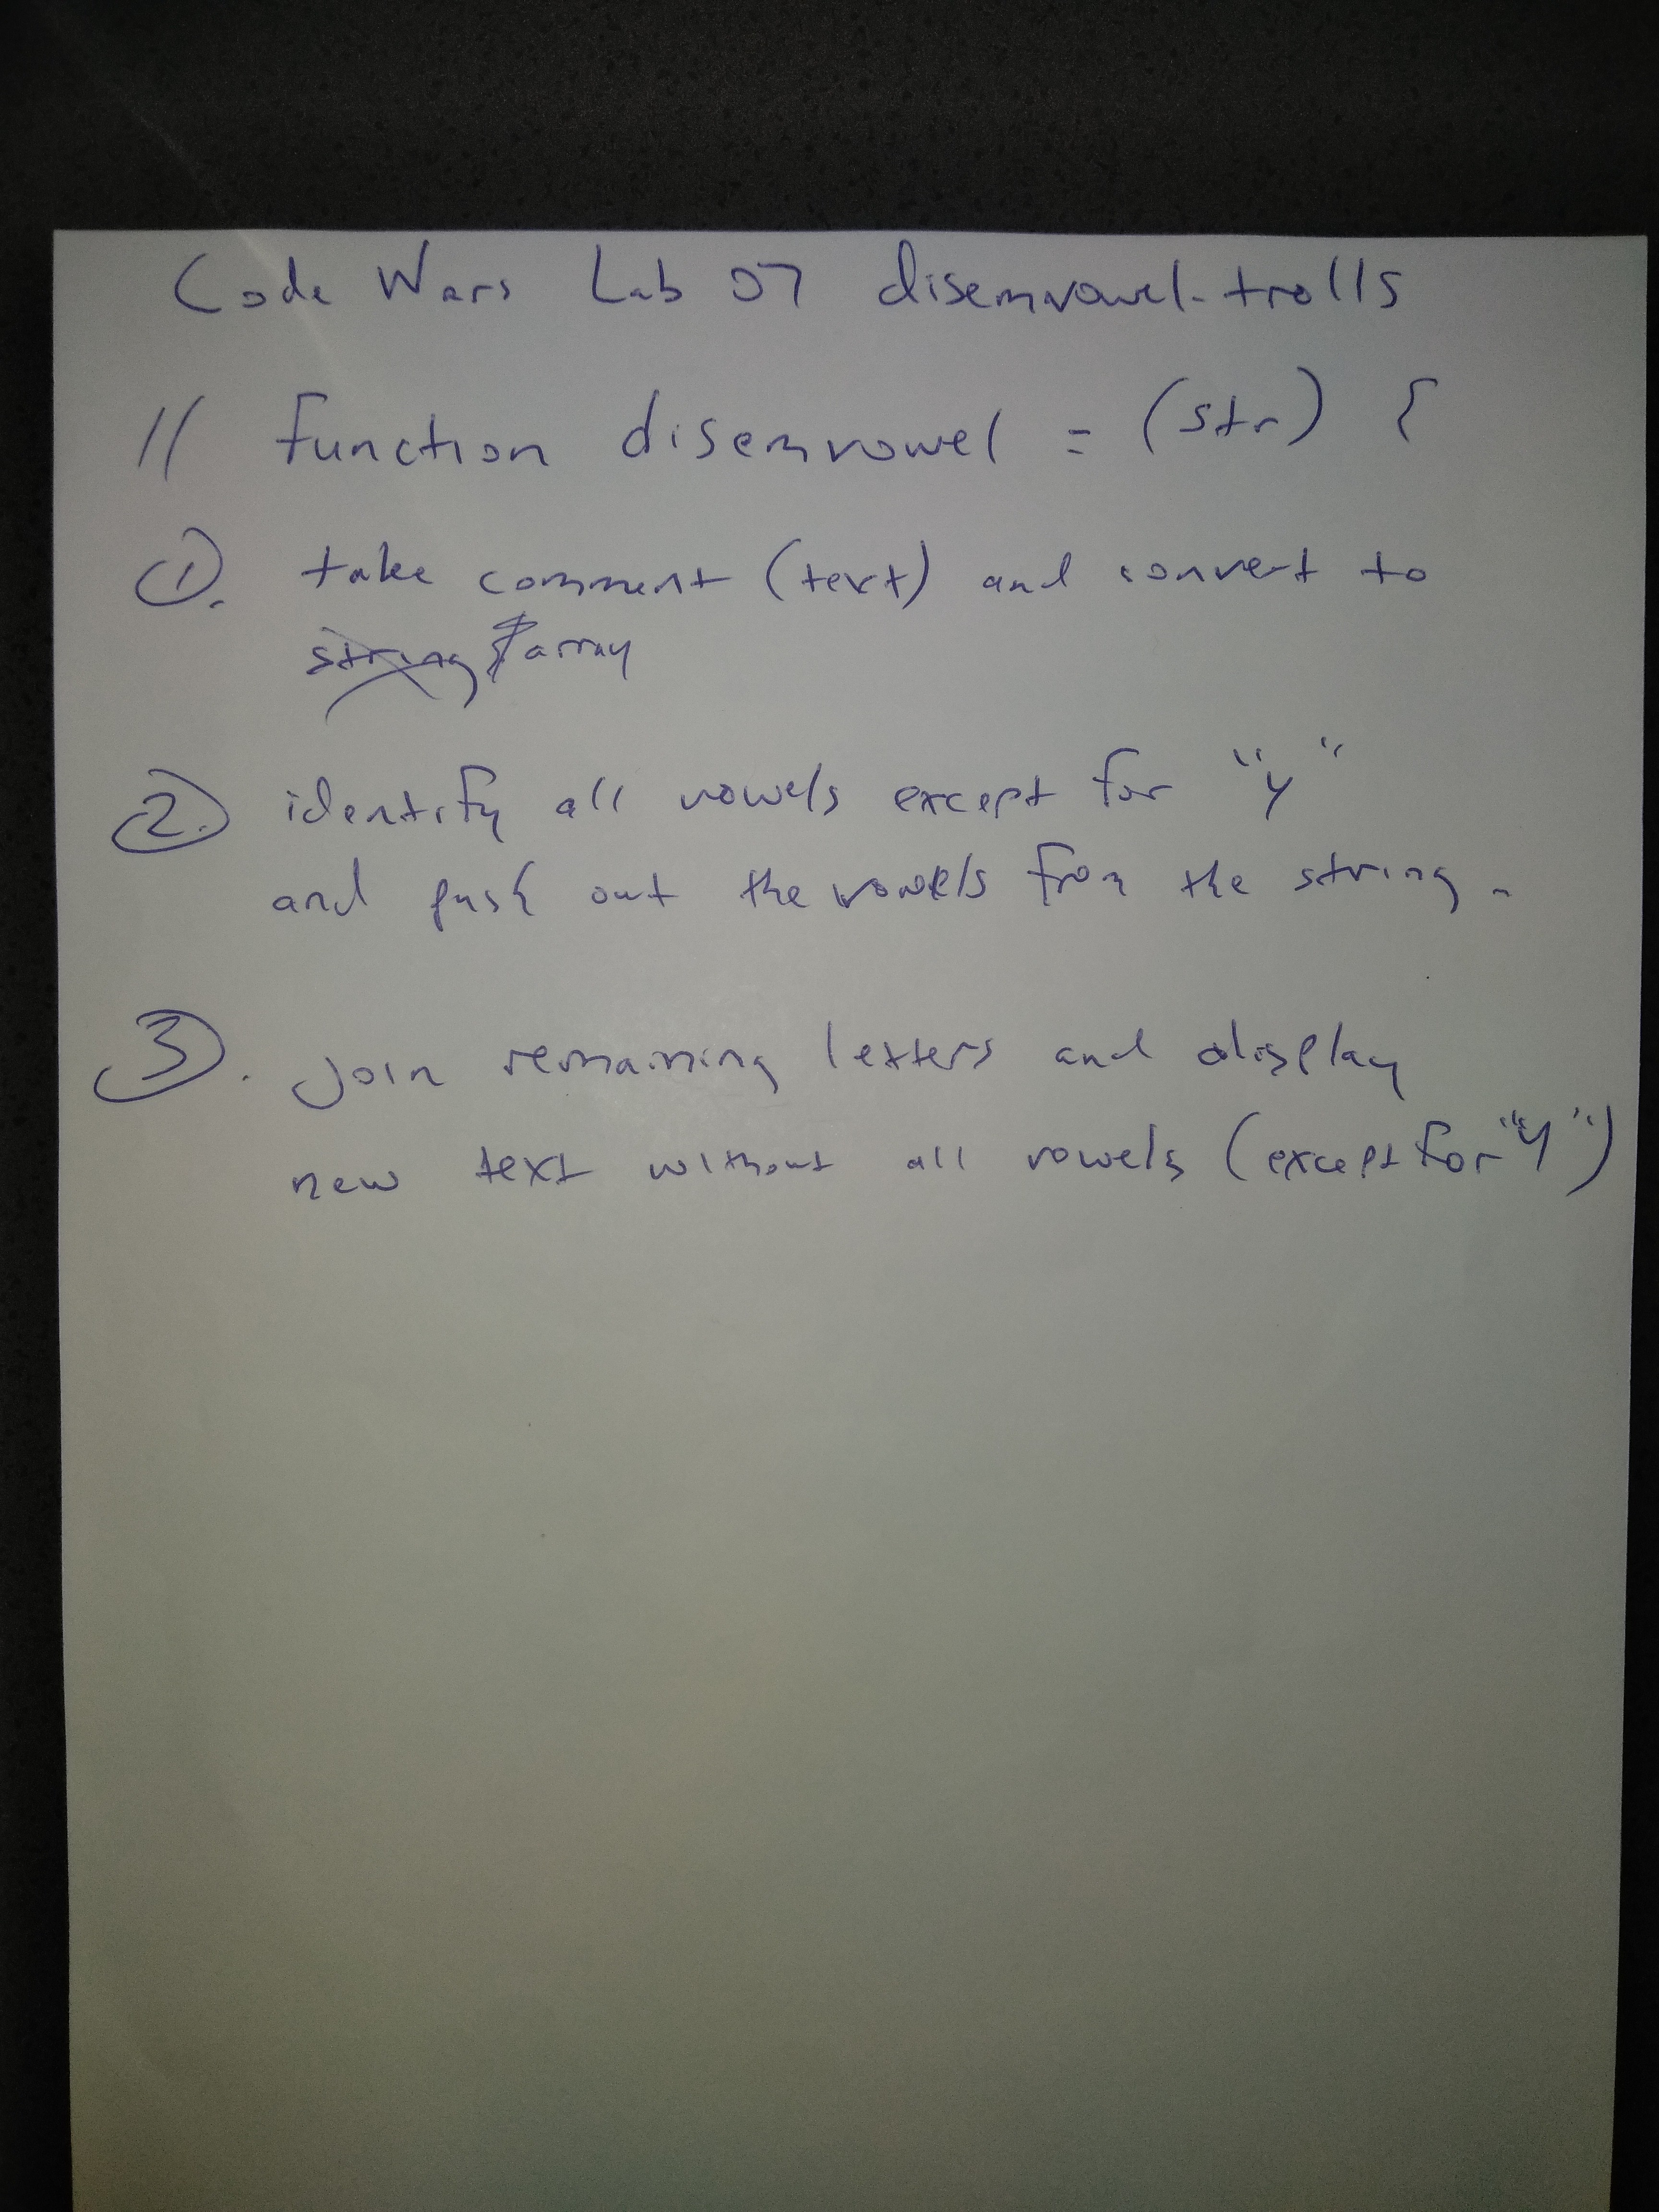 Code Wars Lab 07 disemvowel-trolls
// function disemvowel = (str) {
①. take comment (text) and convert to
string array
②. identify all vowels except for "y"
and push out the vowels from the string.
③. Join remaining letters and display
new text without all vowels (except for "y")